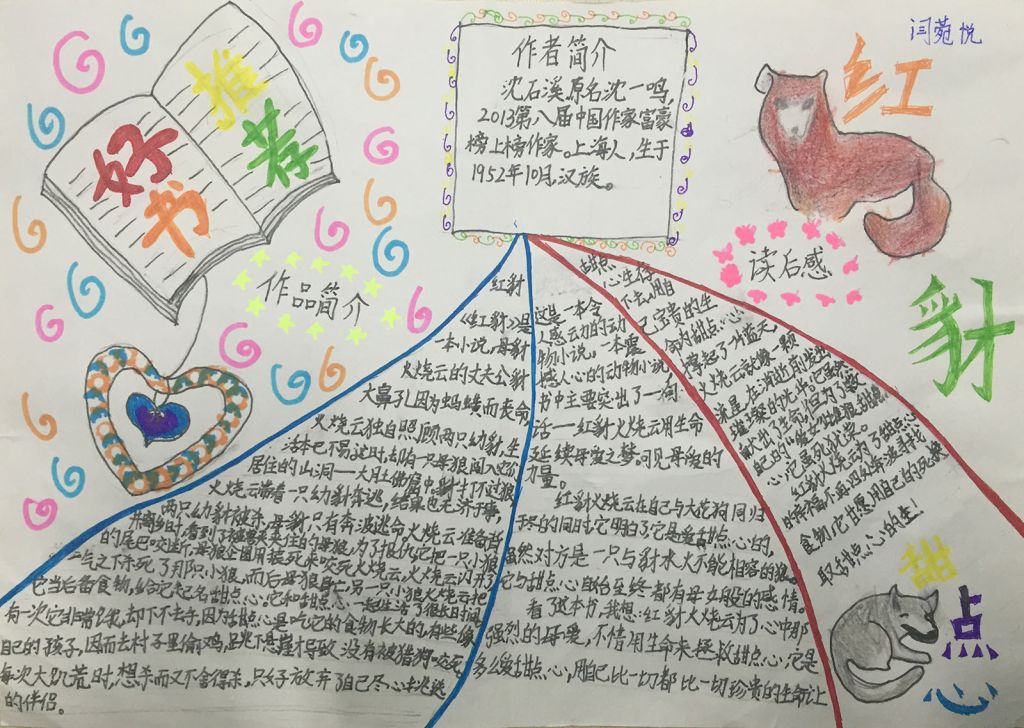 闫菀悦
好书
推荐
作者简介
沈石溪原名沈一鸣,
2013第八届中国作家富豪
榜上榜作家。上海人,生于
1952年10月,汉族。
红
豺
甜
点
心
作品简介
红豺
《红豺》是
一本小说,母豺
火烧云的丈夫公豺
大鼻孔因为蚂蟥而丧命,
火烧云独自照顾两只幼豺,生
活本已不易,这时,却有一只母狼闯入
居住的山洞一大月土佛屠中,豺打不过狼
火烧云带着一只幼豺奔逃,结果也无济于事,
两只幼豺被杀,母豺只有奔波逃命,火烧云准备
的尾巴咬断,母狼企图用
气之下杀死了那只小狼,而后母狼身亡,另一只小狼火烧云把
它当后备食物,给它起名甜点心。它和甜点心一起生活了很长时间,
有一次它非常饿,却下不去手,因为甜点心是吃它的食物长大的,有些像
自己的孩子,因而去村子里偷鸡,跳下悬崖才导致没有被猎狗咬死,
每次大饥荒时,想杀而又不舍得杀,只好放弃了自己尽心去决选
的伴侣。
读后感
这是一本令
人感云力的动
物小说。一本震
感人心的动物小说
书中主要突出了一句:
活一红豺火烧云用生命
延续母爱之梦。可见母爱的
力量。
红豺火烧云在自己与大花狗同归
于尽的同时,它明白了,它是爱甜点心的,
虽然对方是一只与豺水火不能相容的狼。
它与甜点心自始至终都有母女般的感情。
看了这本书,我想:红豺火烧云为了心中那
强烈的母爱,不惜用生命来拯救甜点心,它是
多么爱甜点心,用自己比一切都比一切珍贵的生命让
甜点心生存
下去,用自
己宝贵的生
命为甜点心
撑起了一片蓝天,
火烧云就像一颗
流星,在消逝前发出
璀璨的光芒,它虽然
献出了生命,但为了救
心,它虽死犹荣。
红豺火烧云为了甜点心
的幸福不再四处奔波寻找
食物,它甘愿用自己的死换
取甜点心的生!